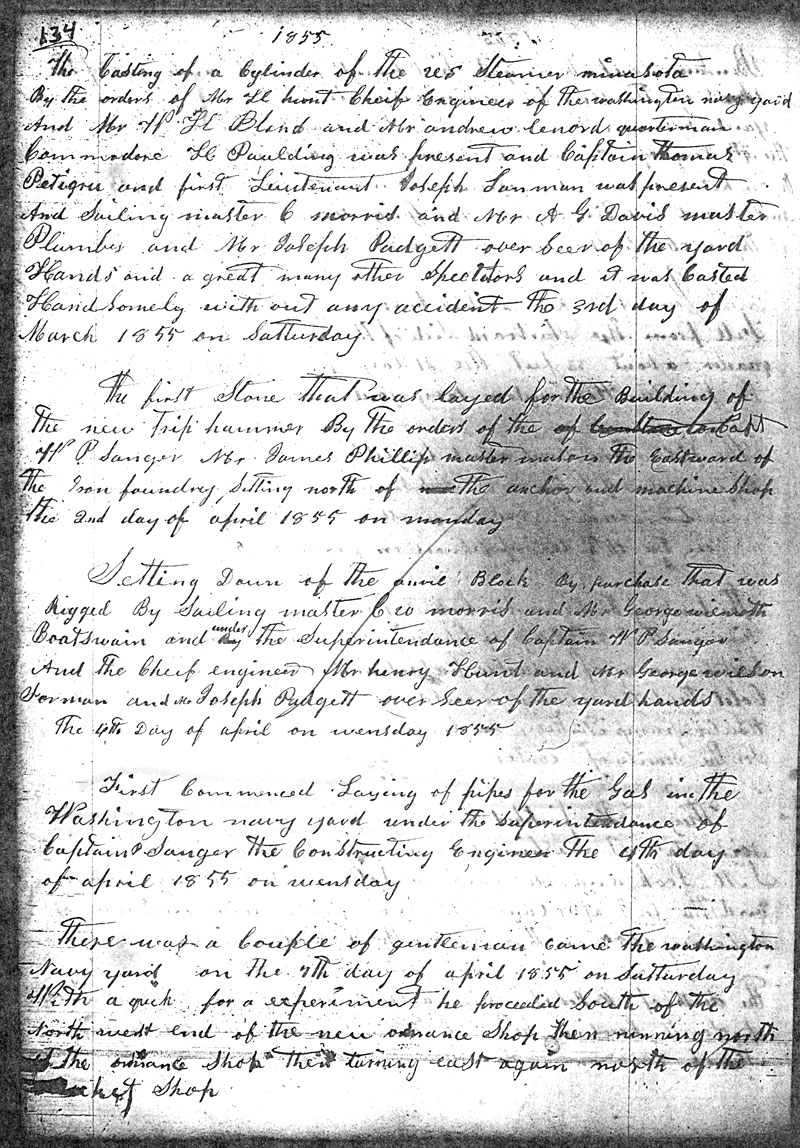 134
1855
The Casting of a Cylinder of the US Steamer minasota
By the orders of Mr H hunt Cheif Engineer of the washington navy yard
And Mr W H Bland and Mr andrew lenord quarterman
Commodore H Paulding was present and Captain thomas
Petigru and first Lieutenant Joseph Lanman was present
And Sailing master C morris and Mr A G Davis master
Plumber and Mr Joseph Padgett over Seer of the yard
Hands and a great many other Spectators and it was Casted
Handsomely with out any accident the 3rd day of
March 1855 on Satturday
The first Stone that was layed for the Building of
The new Trip hammer By the orders of the of Capt
W P Sanger Mr James Phillip master mason the Eastward of
the Iron foundry Setting north of the anchor and machine Shop
the 2nd day of april 1855 on monday
Setting Down of the anvil Block By purchase that was
Rigged By Sailing master C W morris and Mr George wilmoth
Boatswain and under the Superintendance of Captain W P Sanger
And the Cheif engineer Mr henry Hunt and Mr George wilson
Forman and Mr Joseph Padgett over Seer of the yard hands
The 4th Day of april on wensday 1855
First Commenced Laying of pipes for the Gas in the
Washington navy yard under the superintendance of
Captain Sanger the Constructing Engineer the 4th day
of april 1855 on wensday
There was a Couple of gentleman came the washington
Navy yard on the 7th day of april 1855 on Satturday
With a for a experiment he proceeded South of the
North west end of the new ordnance Shop then running north
of the ordnance Shop then turning east again north of the
Shop